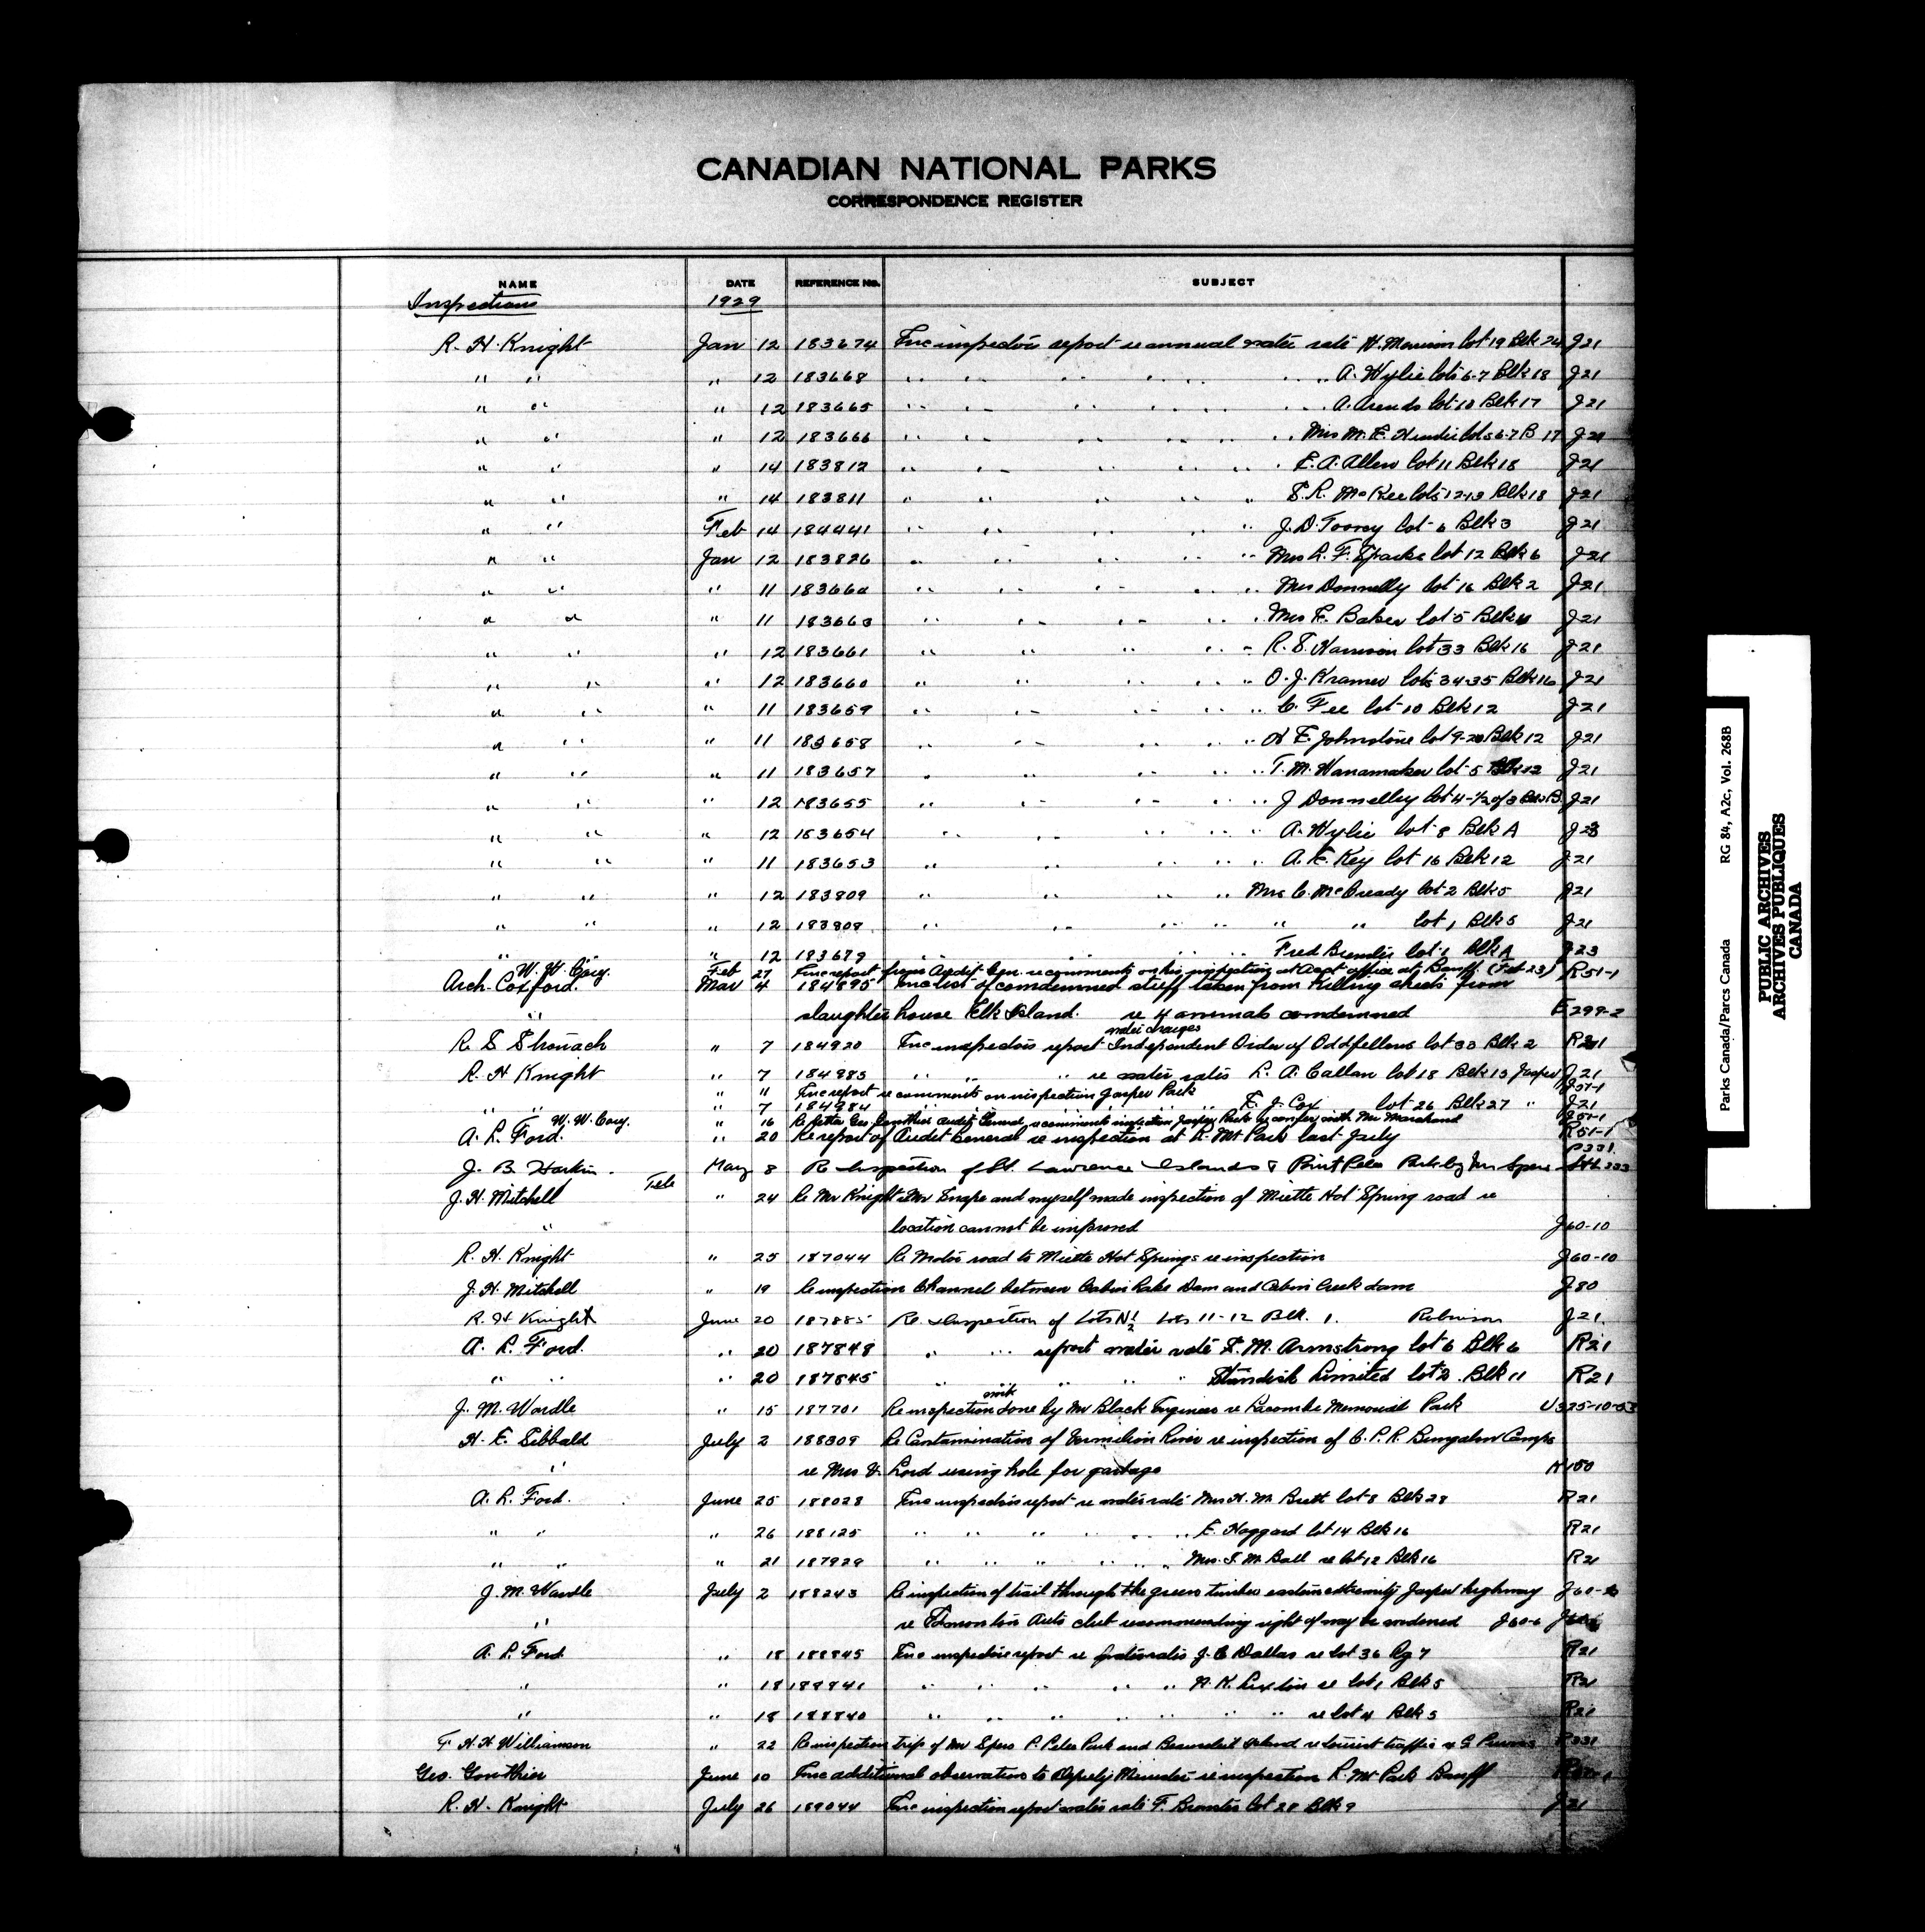 CANADIAN NATIONAL PARKS
CORRESPONDENCE REGISTER
NAME DATE REFERENCE No. SUBJECT
Inspections 1929
R. H. Knight Jan 12 183674 Enc inspectors report re annual water rate H. Morrison lot 19 Blk 24 J21
" " " 12 183668 " " " " " " A. Wylie lots 6-7 Blk 18 J21
" " " 12 183665 " " " " " " A. Arends lot 10 Blk 17 J21
" " " 12 183666 " " " " " " Mrs M. E. lots 6-7 B 17 J21
" " " 14 183812 " " " " " " E. A. Allen lot 11 Blk 18 J21
" " " 14 183811 " " " " " S. R. McKee lots 12-13 Blk 18 J21
" " Feb 14 184441 " " " " " J. D. Toovey lot 6 Blk 3 J21
" " Jan 12 183826 " " " " " Mrs L. F. Sparks lot 12 Blk 6 J21
" " " 11 183662 " " " " " Mrs Donnelly lot 16 Blk 2 J21
" " " 11 183663 " " " " " Mrs E. Baker lot 5 Blk 11 J21
" " " 12 183661 " " " " " R. S. Harrison lot 33 Blk 16 J21
" " " 12 183660 " " " " " O. J. Kramer lots 34-35 Blk 16 J21
" " " 11 183659 " " " " " C. Fee lot 10 Blk 12 J21
" " " 11 183658 " " " " " E. Johnstone lot 9-20 Blk 12 J21
" " " 11 183657 " " " " " T. M. Wanamaker lot 5 Blk 12 J21
" " " 12 183655 " " " " " J Donnelley lot 4-1/2 of 3 Blk B. J21
" " " 12 183654 " " " " " A. Wylie lot 8 Blk A J23
" " " 11 183653 " " " " " A. E. Key lot 16 Blk 12 J21
" " " 12 183809 " " " " " Mrs C. McCready lot 2 Blk 5 J21
" " " 12 183808 " " " " " " " lot 1 Blk 5 J21
" " " 12 183679 " " " " " Fred Brewster lot 1 Blk A J23
W. W. Cory. Feb 27 Enc report from Audit Gen. re comments on his inspection at Acct office at Banff. (Feb 23) R51-1
Arch. Coxford. Mar 4 184895 Enc list of comdemned stuff taken from killing sheds from
" slaughter house Elk Island. re 4 animals condemned E299-2
water charges
R. S. Stronach " 7 184920 Enc inspectors report Independent Order of Oddfellows lot 33 Blk 2 R21
R. H. Knight " 7 184983 " " " re water rates L. A. Callan lot 18 Blk 13 Jasper J21
" 11 Enc report re comments on inspection Jasper Park J51-1
" " " 7 184984 " " " " " E. J. Cox lot 26 Blk 27 " J21
W. W. Cory. " 16 Re letter Geo Gonthier Audit General re comments inspection Jasper Park to confer with Mr Marchand J51-1
A. L. Ford. " 20 Re report of Audit General re inspection at R. Mt Park last July R51-1
P331.
J. B. Harkin. May 8 Re Inspection of St. Lawrence Islands & Point Pelee Park by Mr Spero StL 333
J. H. Mitchell Tele " 24 Re Mr Knight, Mr Snape and myself made inspection of Miette Hot Spring road re
" location cannot be improved J60-10
R. H. Knight " 25 187044 Re Motor road to Miette Hot Springs re inspection J60-10
J. H. Mitchell " 19 Re inspection Channel between Cabin Lake Dam and Cabin Creek dam J80
R. H Knight June 20 187885 Re Inspection of Lots N½ Lots 11-12 Blk. 1. Robinson J21.
A. L. Ford. " 20 187848 " " report water rate E. M. Armstrong lot 6 Blk 6 R21
" " " 20 187845 " " " " " Standish Limited lot 2. Blk 11 R21
work
J. M. Wardle " 15 187701 Re inspection done by Mr Black Engineer re Lacombe Memorial Park U325-10-53
H. E. Sibbald July 2 188309 Re Contamination of Vermilion River re inspection of C. P. R. Bungalow Camps
" re Mrs V. Lord using hole for garbage K150
A. L. Ford. June 25 188028 Enc inspectors report re water rate Mrs H. M. Brett lot 8 Blk 28 R21
" " " 26 188125 " " " " " " E. Haggard lot 14 Blk 16 R21
" " " 21 187929 " " " " " " Mrs. S. M. Ball re lot 12 Blk 16 R21
J. M. Wardle July 2 188243 Re inspection of trail through the green timber eastern extremity Jasper highway J60-
" re Edmonton Auto club recommending right of way be widened J60-6
A. L. Ford " 18 188845 Enc inspectors report re water rates J. C Dallas re lot 36 Rg 7 R21
" " 18 188841 " " " " " N. K. Luxton re lot 1 Blk 5 R21
" " 18 188840 " " " " " " " re lot 4 Blk 5 R21
F H. H Williamson " 22 Re inspection trip of Mr Spero P. Pelee Park and Beausoleil Island re tourist traffic P331
Geo. Gonthier June 10 Enc additional observation to Deputy Minister re inspection R. Mt Park Banff
R. H. Knight July 26 189044 Enc inspection report water rate F. Brewster lot 28 Blk 9 J21
Parks Canada/Parcs Canada RG 84, A2c, Vol. 268B
PUBLIC ARCHIVES
ARCHIVES PUBLIQUES
CANADA